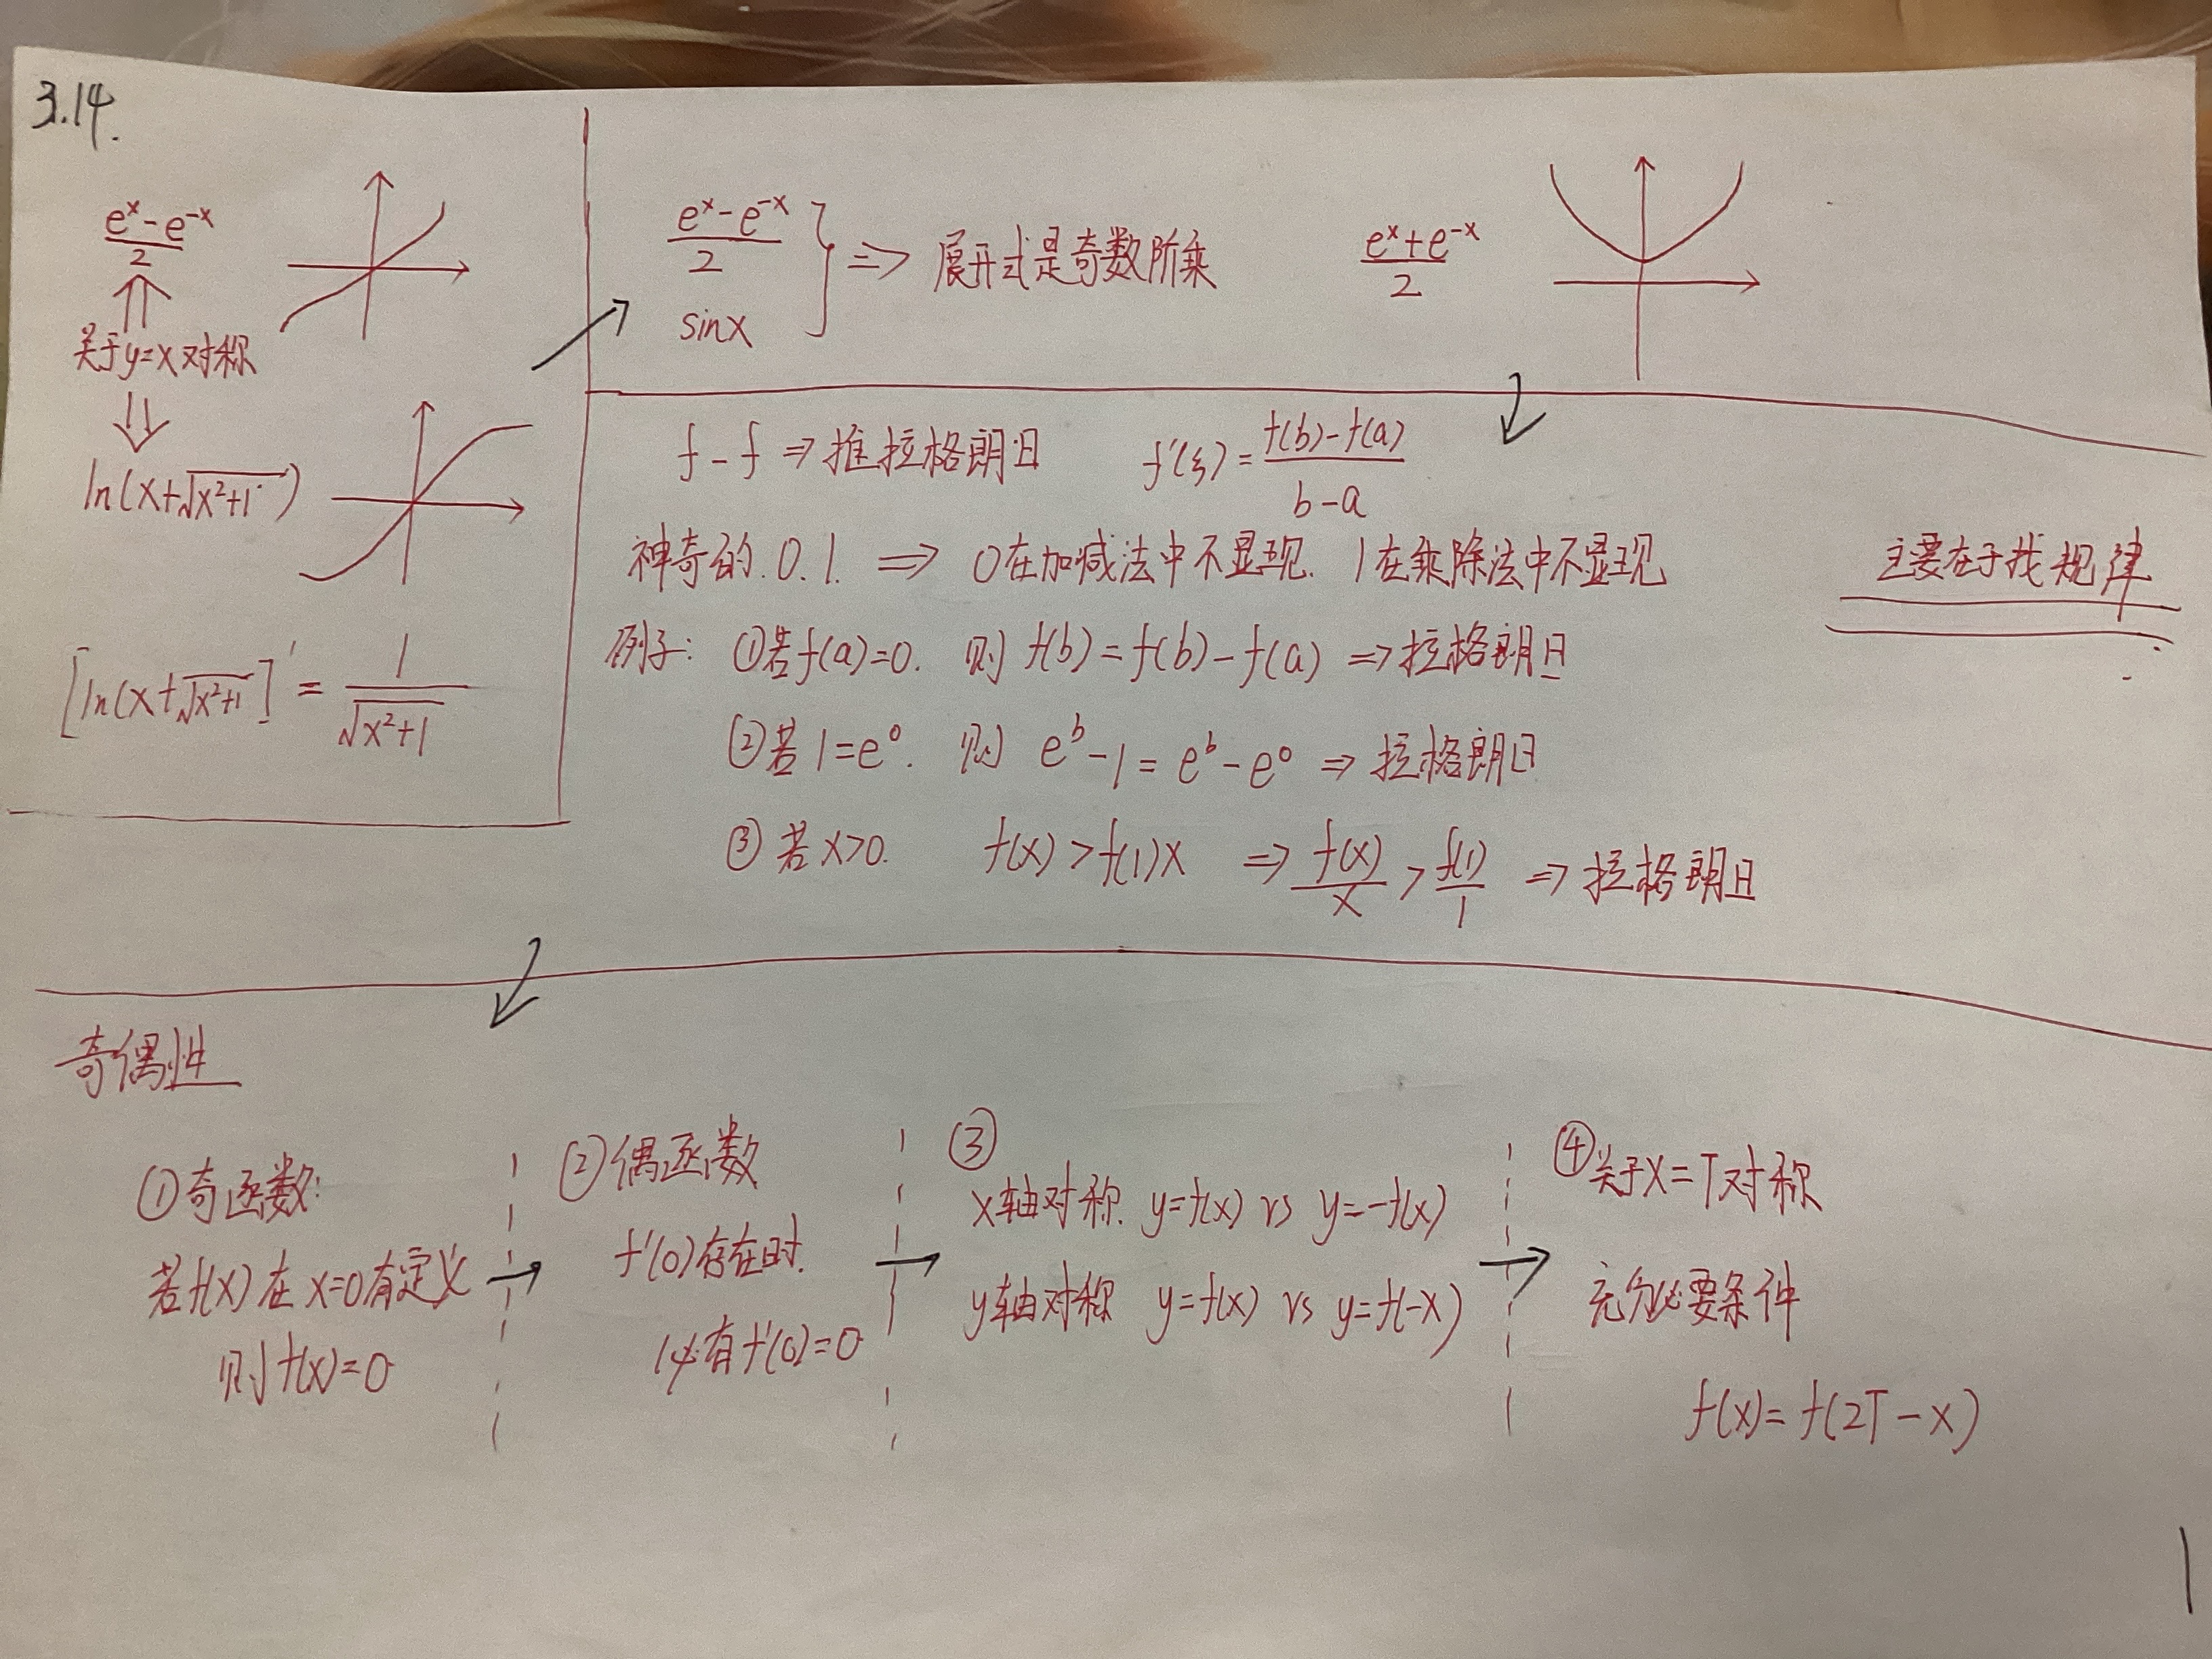 3.14.
(e^x - e^-x)/2
关于y=x对称
ln(x+√(x²+1))
[ln(x+√(x²+1)]' = 1/√(x²+1)
(e^x - e^-x)/2
sinx
⇒ 展开式是奇数阶乘
(e^x + e^-x)/2
f - f ⇒ 推拉格朗日 f'(ξ) = (f(b)-f(a))/(b-a)
神奇的.0.1. ⇒ 0在加减法中不显现. 1在乘除法中不显现
主要在于找规律
例子: ①若f(a)=0. 则 f(b)=f(b)-f(a) ⇒拉格朗日
②若 1=e^0. 则 e^b-1=e^b-e^0 ⇒ 拉格朗日
③ 若 x>0. f(x)>f(1)x ⇒ f(x)/x > f(1)/1 ⇒ 拉格朗日
奇偶性
①奇函数:
若f(x)在x=0有定义
则f(x)=0
②偶函数
f'(0)存在时.
必有f'(0)=0
③
x轴对称. y=f(x) vs y=-f(x)
y轴对称 y=f(x) vs y=f(-x)
④关于x=T对称
充分必要条件
f(x)=f(2T-x)
1